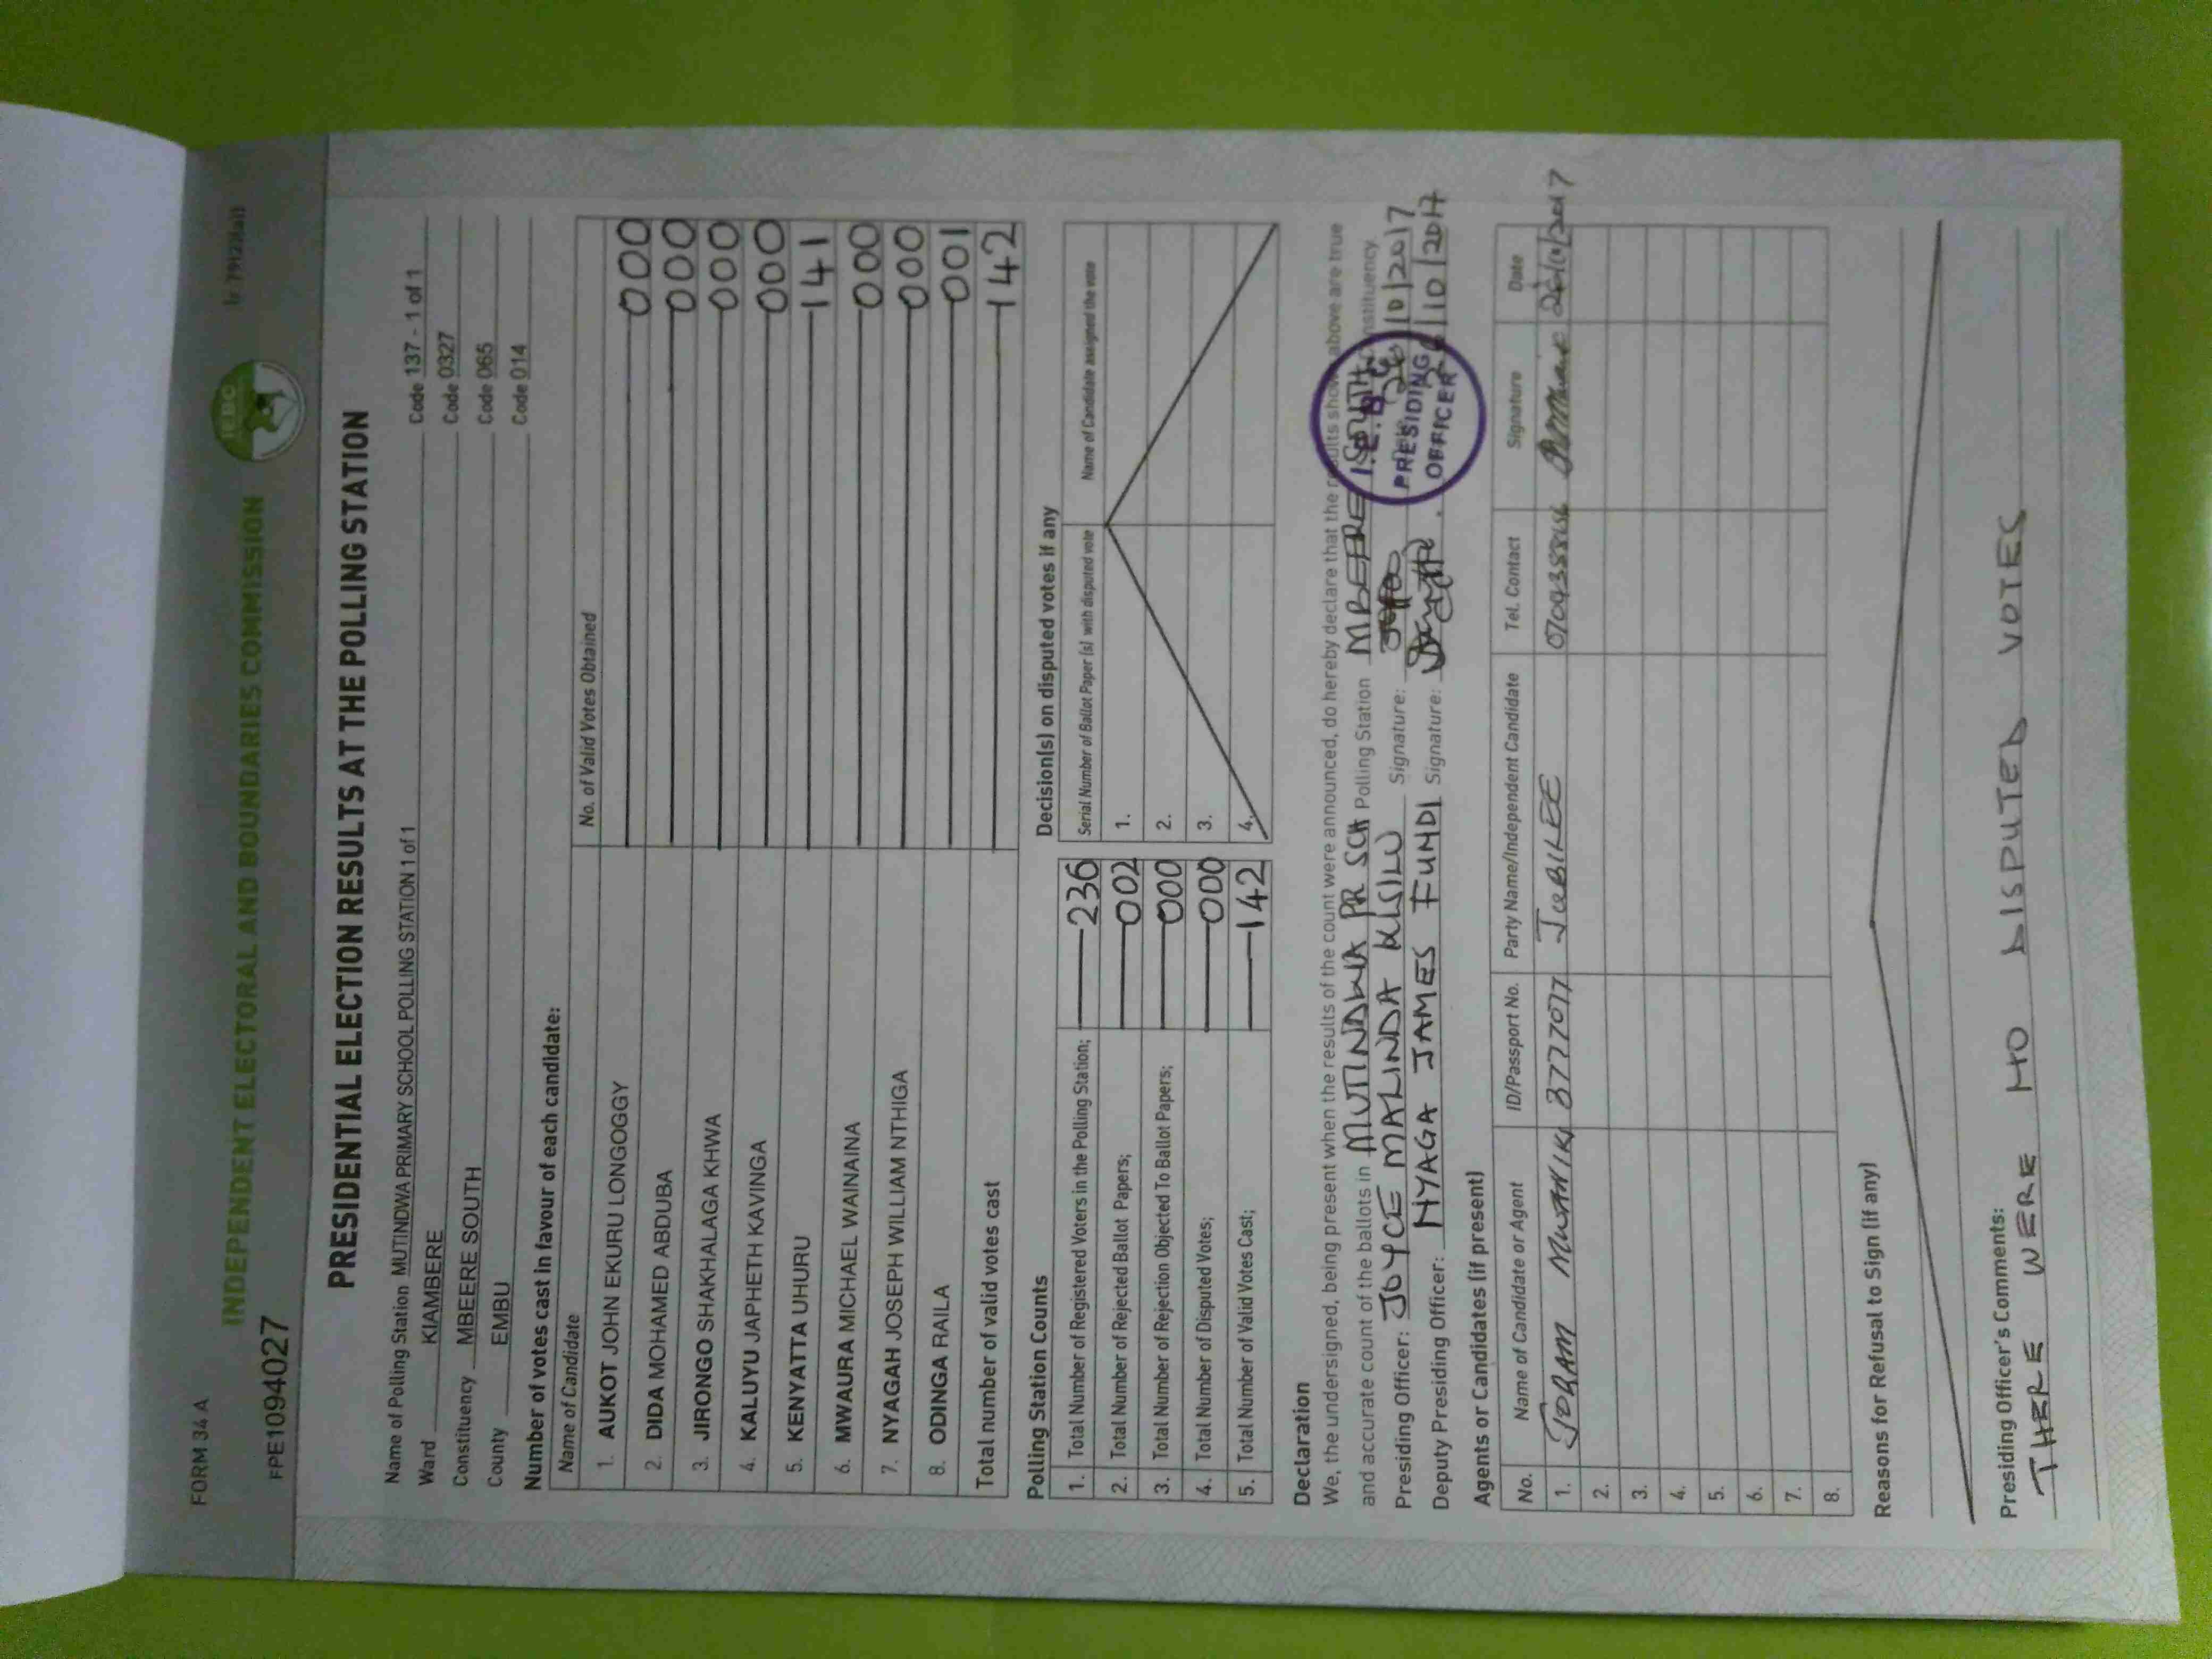 FORM 34 A
INDEPENDENT ELECTORAL AND BOUNDARIES COMMISSION
IEBC
FPE1094027
PRESIDENTIAL ELECTION RESULTS AT THE POLLING STATION
Name of Polling Station MUTINDWA PRIMARY SCHOOL POLLING STATION 1 of 1 Code 137 - 1 of 1
Ward KIAMBERE Code 0327
Constituency MBEERE SOUTH Code 065
County EMBU Code 014
Number of votes cast in favour of each candidate:
Name of Candidate No. of Valid Votes Obtained
1. AUKOT JOHN EKURU LONGOGGY 000
2. DIDA MOHAMED ABDUBA 000
3. JIRONGO SHAKHALAGA KHWA 000
4. KALUYU JAPHETH KAVINGA 000
5. KENYATTA UHURU 141
6. MWAURA MICHAEL WAINAINA 000
7. NYAGAH JOSEPH WILLIAM NTHIGA 000
8. ODINGA RAILA 001
Total number of valid votes cast 142
Polling Station Counts
1. Total Number of Registered Voters in the Polling Station; 236
2. Total Number of Rejected Ballot Papers; 002
3. Total Number of Rejection Objected To Ballot Papers; 000
4. Total Number of Disputed Votes; 000
5. Total Number of Valid Votes Cast; 142
Decision(s) on disputed votes if any
Serial Number of Ballot Paper (s) with disputed vote Name of Candidate assigned the vote
1.
2.
3.
4.
Declaration
We, the undersigned, being present when the results of the count were announced, do hereby declare that the results shown above are true
and accurate count of the ballots in MUTINDWA PR SCH Polling Station MBEERE SOUTH Constituency.
Presiding Officer: JOYCE MALINDA KISILU Signature: 26/10/2017
Deputy Presiding Officer: NYAGA JAMES FUNDI Signature: /10/2017
I.E.B.C
PRESIDING
OFFICER
Agents or Candidates (if present)
No. Name of Candidate or Agent ID/Passport No. Party Name/Independent Candidate Tel. Contact Signature Date
1. JORAM JUBILEE 26/10/2017
2.
3.
4.
5.
6.
7.
8.
Reasons for Refusal to Sign (if any)
Presiding Officer's Comments:
THERE WERE NO DISPUTED VOTES